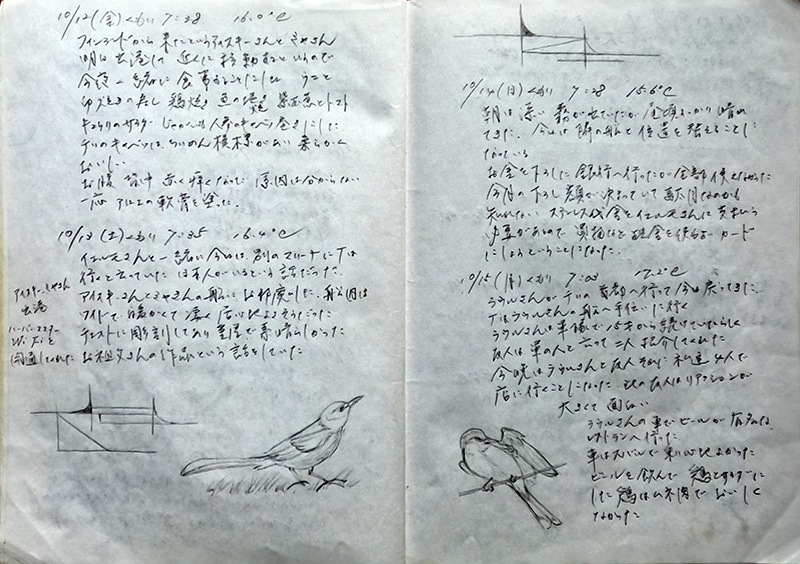 10/12(金)くもり 7:28 16.0℃
フィンランドから来たというアイスキーさんとミヤさん
明日出港して近くに移動するというので
今夜一緒に食事することにした
卵焼き 鶏焼き 豆の 紫玉葱とトマト
キュウリのサラダ じゃがいも 人参のキャベツ にした
チリのキャベツは ちりめん模様があり 柔らかく
おいしい
お腹 赤く痒くなって 原因は分からない
一応 アロエの軟膏を塗った
10/13(土)くもり 7:35 16.4℃
イルモさんと一緒に今日は、別のマリーナにTは
行くと言っていた 日本人がいるという話だった
アイスキーさんとミヤさんの船にお邪魔した。船内は
ワイドで暖かくて凄く居心地よさそうだった
チェストに彫刻してあり 素晴らしかった
お祖父さんの作品という話をしていた
アイスキー、ミヤさん
出港
ハーバーマスター
10/14(日)くもり 7:28 15.6℃
朝は深い霧が出ていたが昼頃 晴れ
てきた。今日は隣の船と位置を替えることに
なっている
お金を下ろしに銀行へ行ったが全部使えなかった
今月の下ろし額が決まっていて駄目なのかも
知れない ステンレス代金をイルモさんに支払う
必要があるので 買物など現金を使わずカード
にしようということになった
10/15(月)くもり 7:03 17.2℃
ラウルさんがチリの首都へ行って今日戻ってきた。
Tはラウルさんの船へ手伝いに行く
ラウルさんは軍隊で15才から続けていたらしく
友人は軍の人と言って二人紹介してくれた
今晩はラウルさんと友人 それに私達4人で
店に行くことになった 友人はリアクションが
大きくて面白い
ラウルさんの車でビールが有名な
レストランへ行った
車はスバルで乗り心地よかった
ビールを飲んで 鶏とサラダに
した 鶏はムネ肉でおいしく
なかった